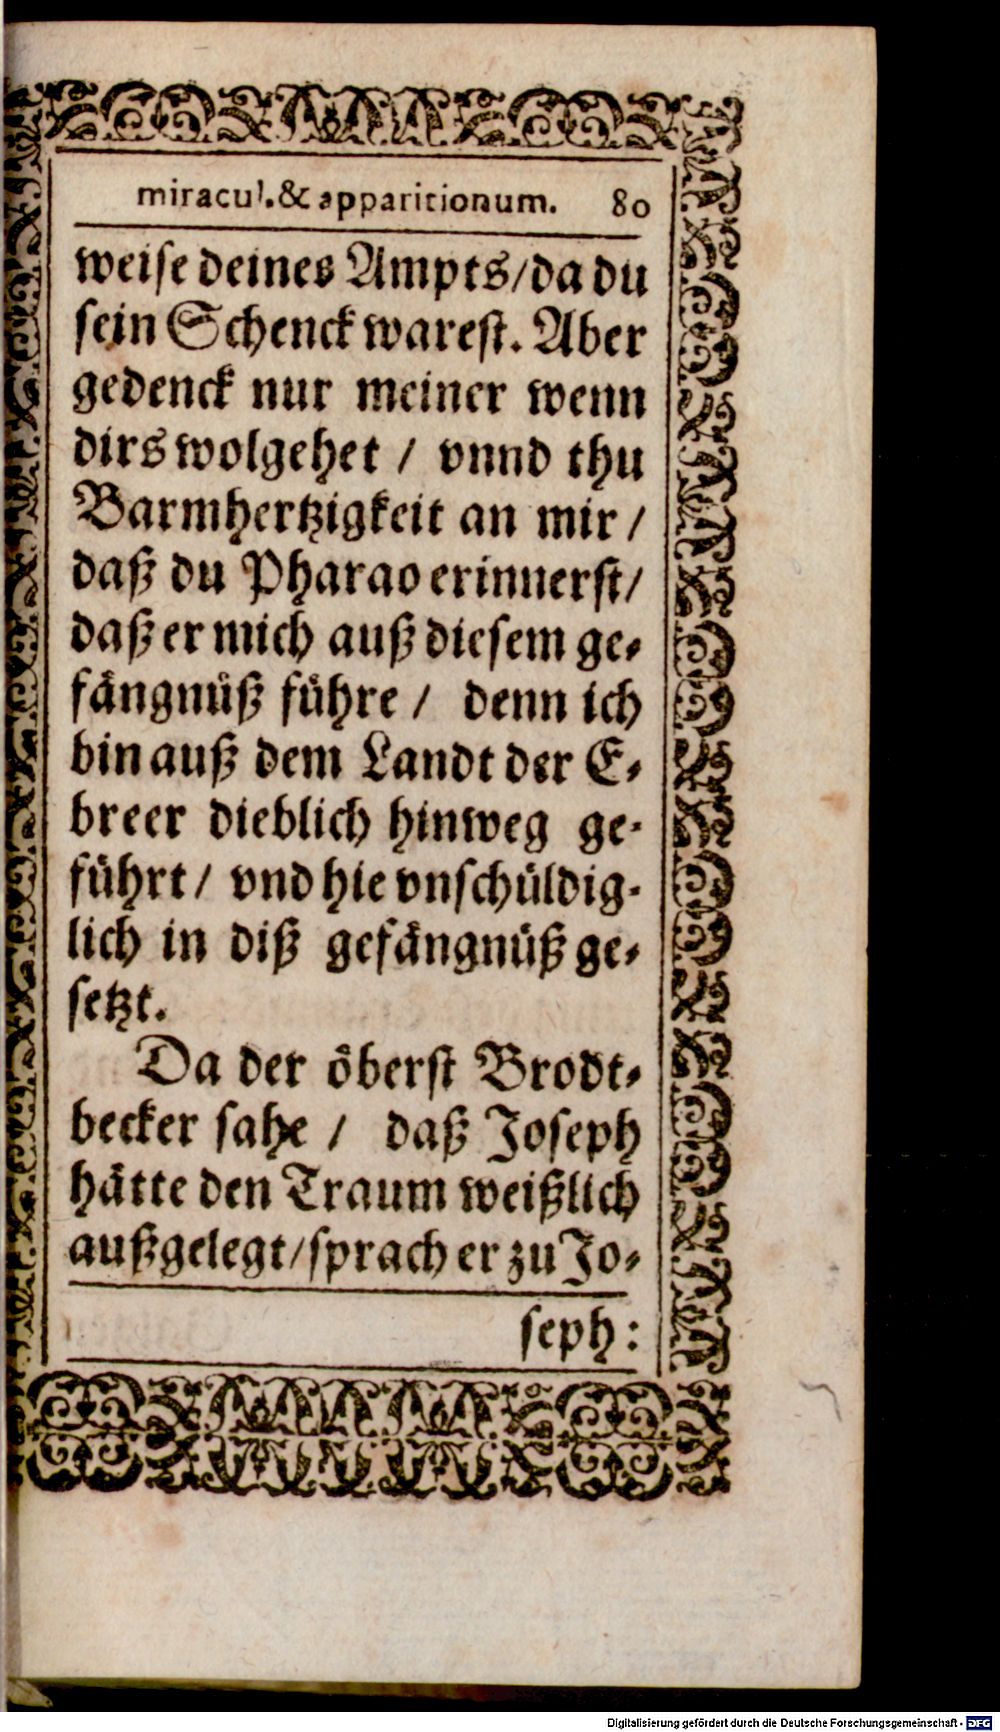 miracul. & apparitionum. 80
weise deines Ampts/da du
sein Schenck warest. Aber
gedenck nur meiner wenn
dirs wolgehet / vnnd thu
Barmhertzigkeit an mir /
daß du Pharao erinnerst/
daß er mich auß diesem ge-
fängnüß führe / denn ich
bin auß dem Landt der E-
breer dieblich hinweg ge-
führt / vnd hie vnschüldig-
lich in diß gefängnüß ge-
setzt.
Da der öberst Brodt-
becker sahe / daß Joseph
hätte den Traum weißlich
außgelegt/sprach er zu Jo-
seph:
Digitalisierung gefördert durch die Deutsche Forschungsgemeinschaft - DFG